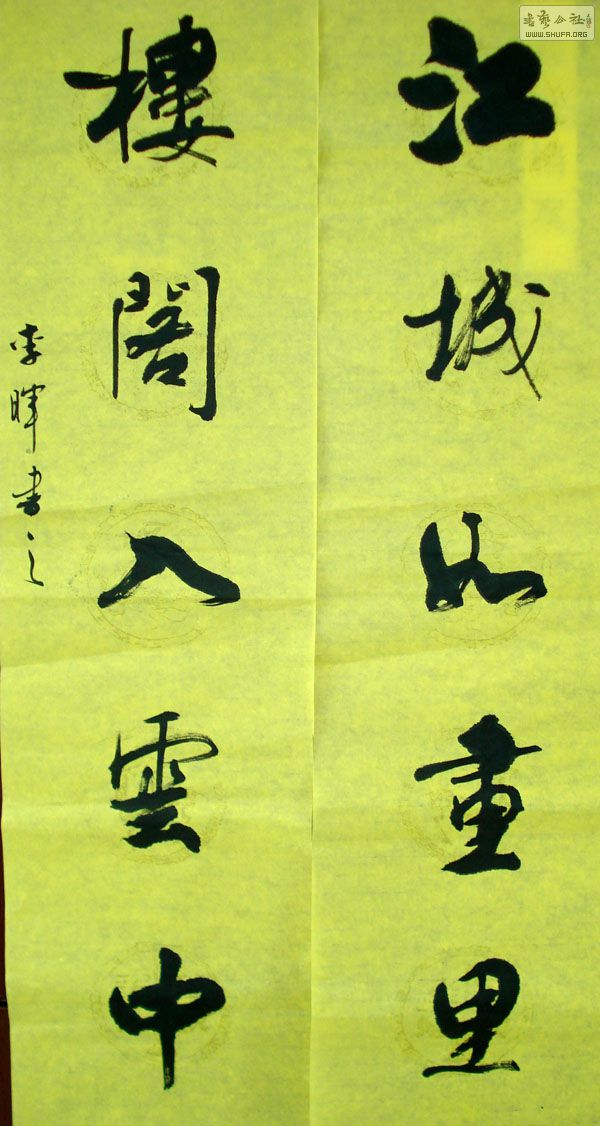 江城山重里
樓閣入雲中
李暉書之
書藝公社
WWW.SHUFA.ORG